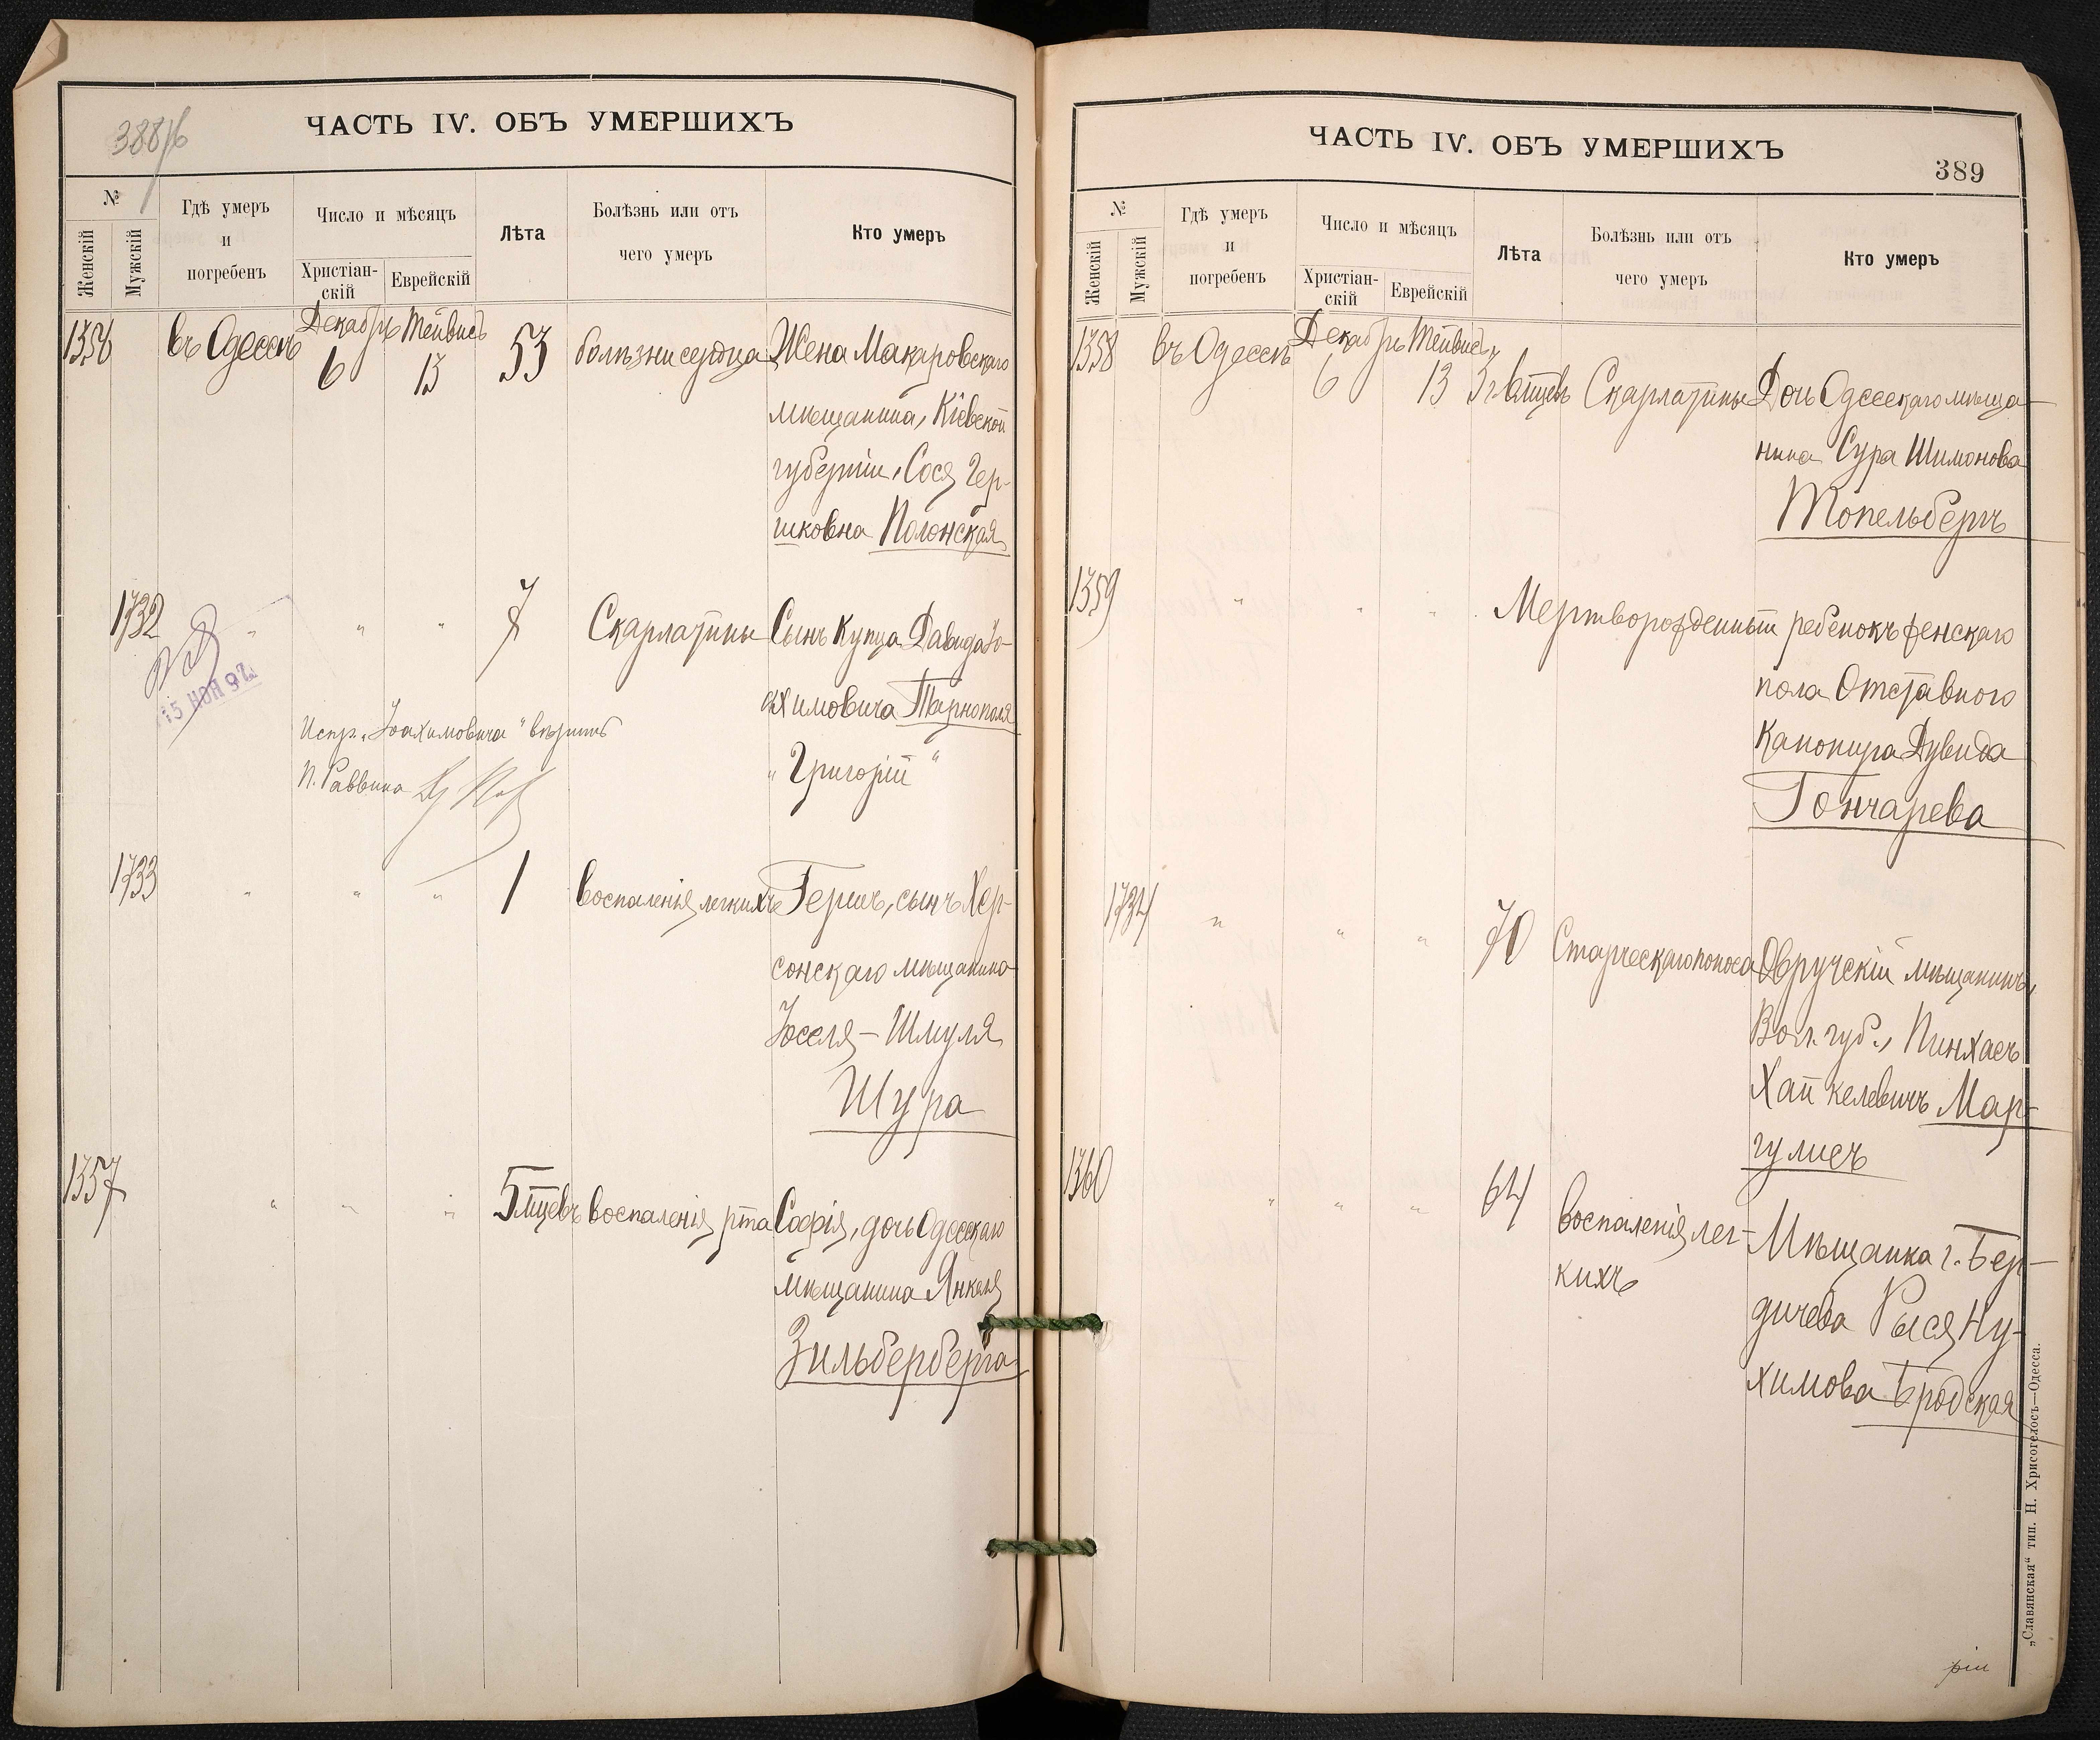 388
ЧАСТЬ IV. ОБЪ УМЕРШИХЪ
№
Женскій
Мужскій
Гдѣ умеръ
и
погребенъ
Число и мѣсяцъ
Христіан-
скій
Еврейскій
Лѣта
Болѣзнь или отъ
чего умеръ
Кто умеръ
1356 въ Одессѣ Декабрь 6 Тейвисъ 13 53 болѣзни сердца Жена Макаровскаго
мѣщанина, Кіевской
губерніи, Сося Гер-
шковна Полонская
1732 " " " 7 Скарлатины Сынъ Купца Давида Іо-
ахимовича Тарнополя
"Григорій"
15 НОЯ 92
Испр. "Іоахимовича" вѣрить
П. Раввина
1733 " " " 1 воспаленія легкихъ Гершъ, сынъ Хер-
сонскаго мѣщанина
Іоселя-Шмуля
Шура
1357 " " " 5 мцевъ воспаленія рта Софія, дочь Одесскаго
мѣщанина Янкеля
Зильберберга
ЧАСТЬ IV. ОБЪ УМЕРШИХЪ
389
№
Женскій
Мужскій
Гдѣ умеръ
и
погребенъ
Число и мѣсяцъ
Христіан-
скій
Еврейскій
Лѣта
Болѣзнь или отъ
чего умеръ
Кто умеръ
1358 въ Одессѣ Декабрь 6 Тейвисъ 13 Скарлатины Дочь Одесскаго мѣща-
нина Сура Шимонова
Топельбергъ
1359 " " " Мертворожденный ребенокъ женскаго
пола Отставного
Канонира Дувида
Гончарева
1734 " " " 70 Старческаго поноса Овручскій мѣщанинъ,
Вол. губ., Пинхасъ
Хайкелевичъ Мар-
гулисъ
1360 " " " 64 воспаленія лег-
кихъ
Мѣщанка г. Бер-
дичева Рыся Ну-
химова Бродская
„Славянская“ тип. Н. Хрисогелосъ—Одесса.